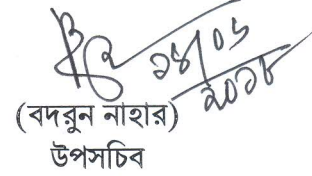 ২৪/০৬
২০১৮
(বদরুন নাহার)
উপসচিব